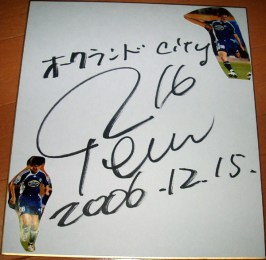 オークランド City
16
2006.12.15.